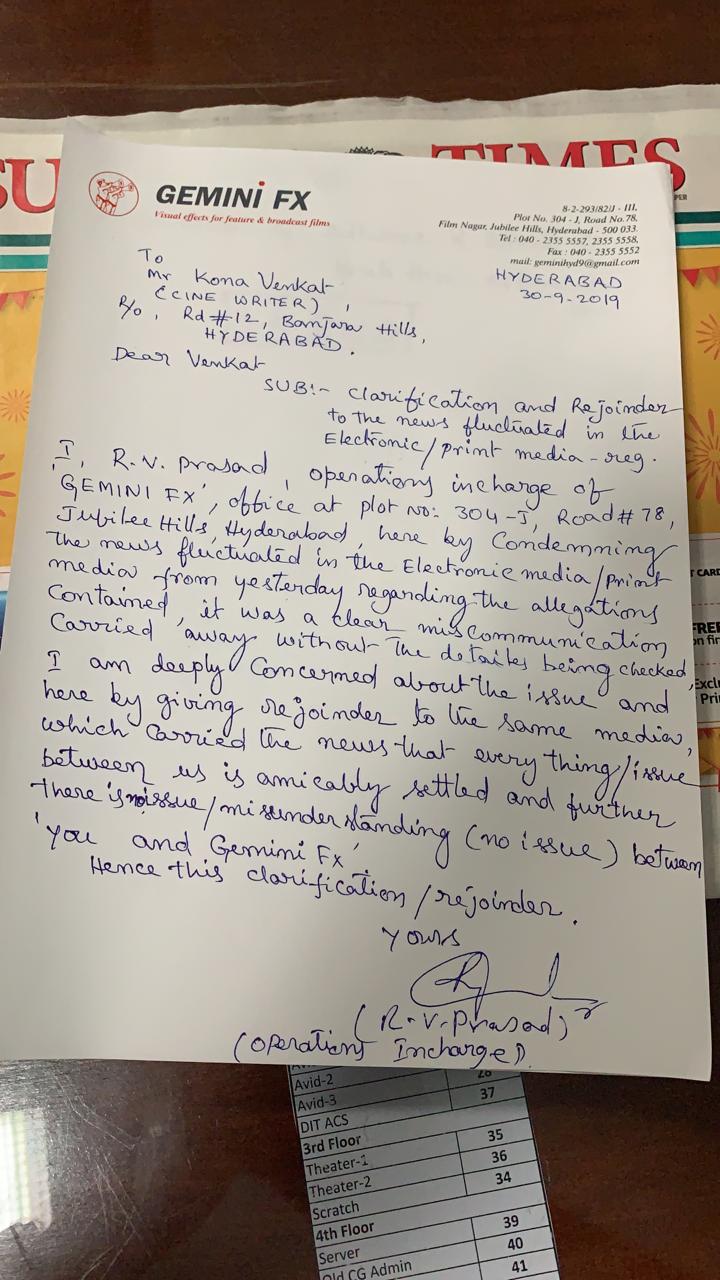 SU
TIMES
GEMINI FX
Visual effects for feature & broadcast films
8-2-293/82/J - III,
Plot No. 304 - J, Road No.78,
Film Nagar, Jubilee Hills, Hyderabad - 500 033.
Tel : 040 - 2355 5557, 2355 5558,
Fax : 040 - 2355 5552
mail: geminihyd9@gmail.com
HYDERABAD
30-9-2019
To
Mr Kona Venkat
(CINE WRITER),
R/o, Rd #12, Banjara Hills,
HYDERABAD.
Dear Venkat
SUB:- clarification and Rejoinder
to the news fluctuated in the
Electronic/print media-reg.
I, R.V. Prasad, operations incharge of
'GEMINI FX', office at plot NO: 304-J, Road # 78,
Jubilee Hills, Hyderabad, here by Condemning
the news fluctuated in the Electronic media/print
media from yesterday regarding the allegations
Contained, it was a clear miscommunication
Carried away without the detailes being checked,
I am deeply Concerned about the issue and
here by giving rejoinder to the same media,
which carried the news that every thing/issue
between us is amicably settled and further
there is no issue/misunderstanding (no issue) between
'you and Gemini Fx'
Hence this clarification/rejoinder.
Yours
(R.V. Prasad)
(Operations Incharge)
Avid-2 28
Avid-3 37
DIT ACS
3rd Floor 35
Theater-1 36
Theater-2 34
Scratch
4th Floor 39
Server 40
Old CG Admin 41
CARD
FREE